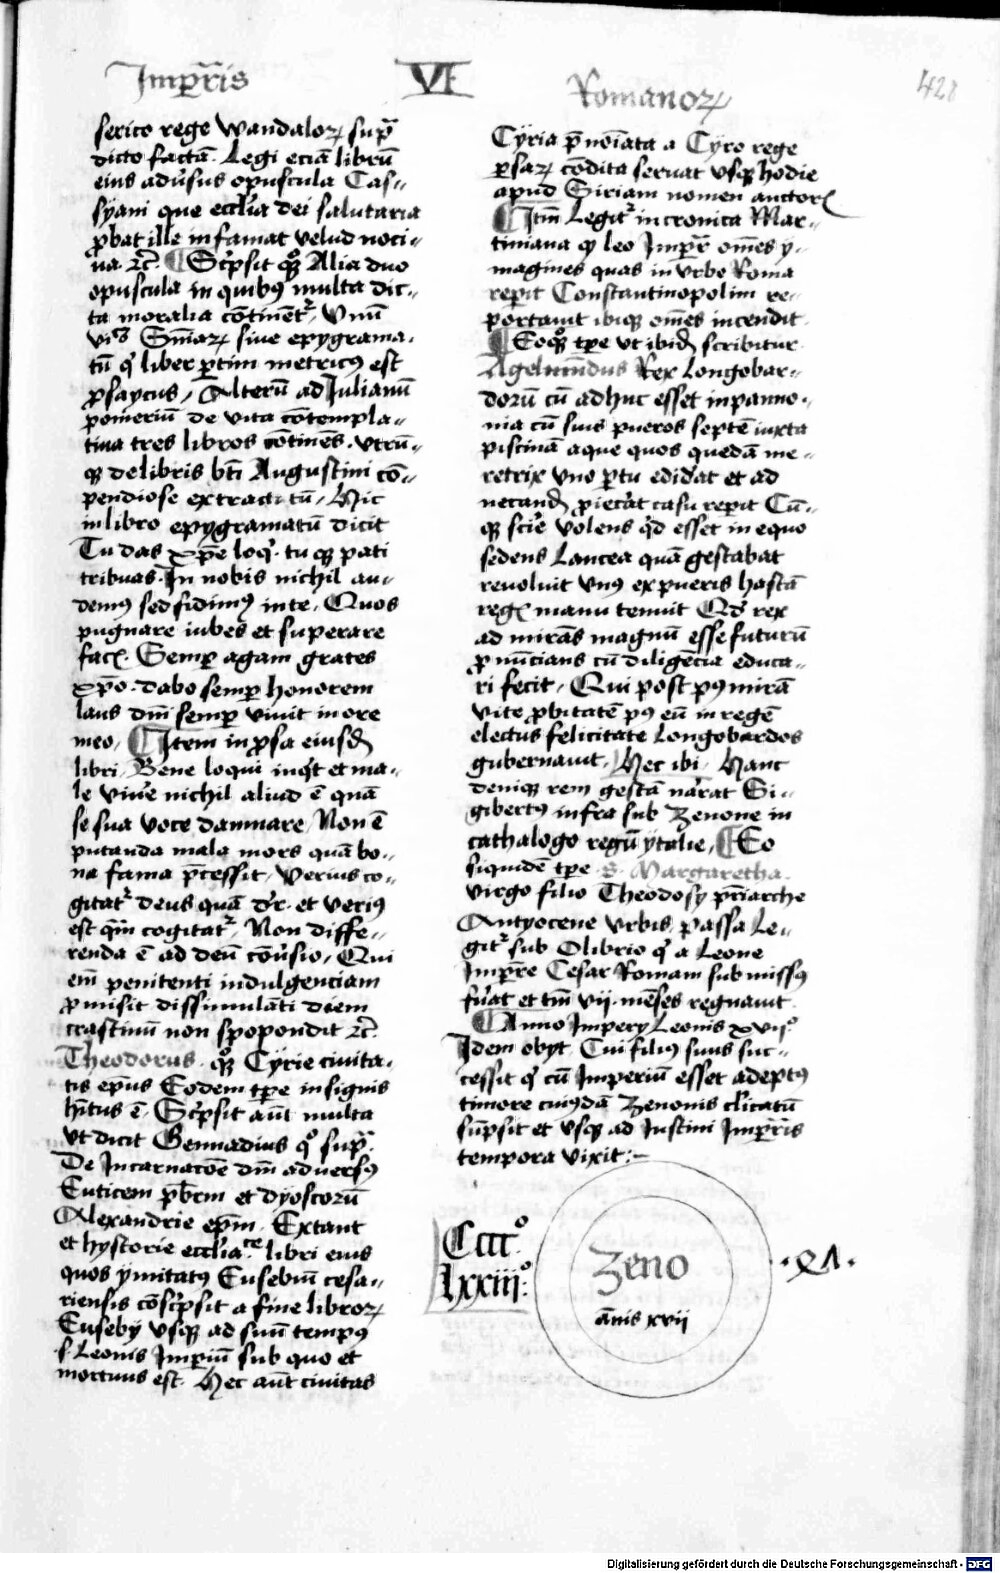 Imꝑꝛ̃is
VI
Romanoꝝ
428
serico rege Wandaloꝝ sup̃
dicto factā. Legi eciā librū
eius aduͤsus opuscula Cas=
syani que eccl̃ia dei salutaria
ꝓbat ille infamat velud noci=
ua. ⁊c̃. Sc̃psit qͦꝫ Alia duo
opuscula in quibꝰ multa dic=
ta moralia cōtinent᷑, Vnum
liber ꝑtim metricꝰ est
ꝓsaycus, Alterū ad Iulianū
pomeriū de vita cōtempla=
tiua tres libros cōtinēs. vtrū=
qꝫ de libris bt̃i Augustini cō=
pendiose extractū, Hic
in libro epygramatū dicit
Tu das xp̃e loqͥ. tu qꝫ pati
tribuas. In nobis nichil au=
demꝰ sed fidimꝰ in te, Quos
pugnare iubes et superare
facͥ. Semꝑ agam grates
xp̃o. dabo semꝑ honorem
laus dn̄i semꝑ viuit in ore
meo, Item in ꝓsa eiusd̃
libri, Bene loqui inqͥt et ma=
le viuͤe nichil aliud ē quā
se sua voce damnare, Non ē
putanda mala mors quā bo=
na fama p̄cessit, Verius co=
gitat᷑ deus quā dr̃. et veriꝰ
est qͣm̃ cogitat᷑, Non diffe=
renda ē ad deū cōuͤsio, Qui
em̃ penitenti indulgenciam
ꝓmisit dissimulāti diem
crastinū non spopondit ⁊c̃.
Theodorus. qͦꝫ Cyrie ciuita=
tis ep̃us Eodem tꝑe insignis
hītus ē. Sc̃psit aūt multa
vt dicit Gennadius qͦ sup̃.
De Incarnacōe dn̄i aduersꝰ
Euticem p̄bt̃m et dyoscorū
Alexandrie ep̄m. Extant
et hystorie eccl̃iaᶜᵉ libri eius
quos ymitatꝰ Eusebiū cesa=
riensis cōsc̃psit a fine libroꝝ
Euseby vsqꝫ ad suū tempꝰ
.s. Leonis Imꝑiū sub quo et
mortuus est. Hec aūt ciuitas
Cyria p̄nōiata a Cyro rege
ꝑsaꝝ cōdita seruat vsqꝫ hodie
apud Siriam nomen auctorͥ
Itm̃ Legit᷑ in cronica Mar=
tiniana qꝫ leo Imꝑꝛ̃ om̄es y=
magines quas in vrbe Roma
reꝑit Constantinopolim re=
portauit ibiqꝫ om̄es incendit.
Eoqͦꝫ tꝑe vt ibid̃ scribitur
Agelmūdus Rex Longobar=
dorū cū adhuc esset in panno=
nia cū suis pueros septē iuxta
piscinā aque quos quedā me=
retrix vno ꝑtu ediđat et ad
necand̃ ꝓiecͤat casu reꝑit Cū=
qꝫ scīe volens qͥd esset in equo
sedens Lancea quā gestabat
reuoluit vnꝰ ex pueris hastā
regͥ manu tenuit Qđ rex
ad mirās magnū esse futurū
ꝓnūcians cū diligēcia educa=
ri fecit, Qui post pꝰ mirā
vite ꝓbitatē pꝰ eū in regē
electus felicitate Longobardos
gubernauit, Hec ibi, Hanc
deniqꝫ rem gestā nar̃at Si=
gibertꝰ infra sub Zenone in
cathalogo regū ytalie, Eo
siquidē tꝑe. S. Margaretha.
virgo filio Theodosy p̄riarche
Antyocene vrbis, passa Le=
git᷑ sub Olibrio qͥ a Leone
Imꝑꝛ̃e Cesar Romam submissꝰ
fuͤat et tm̃ vii. mēses regnauit
Anno Impery Leonis xviiͦ
Idem obyt. Cui filiꝰ suus suc=
cessit qͥ cū Imperiū esset adeptꝰ
timore cuiꝰdā Zenonis cl̃icatū
sūpsit et vsqꝫ ad Iustini Imꝑꝛ̃is
tempora vixit:~
Ccccͦ.
lxxiiiͦ:
Zeno
ān̄is xvii
Digitalisierung gefördert durch die Deutsche Forschungsgemeinschaft - DFG